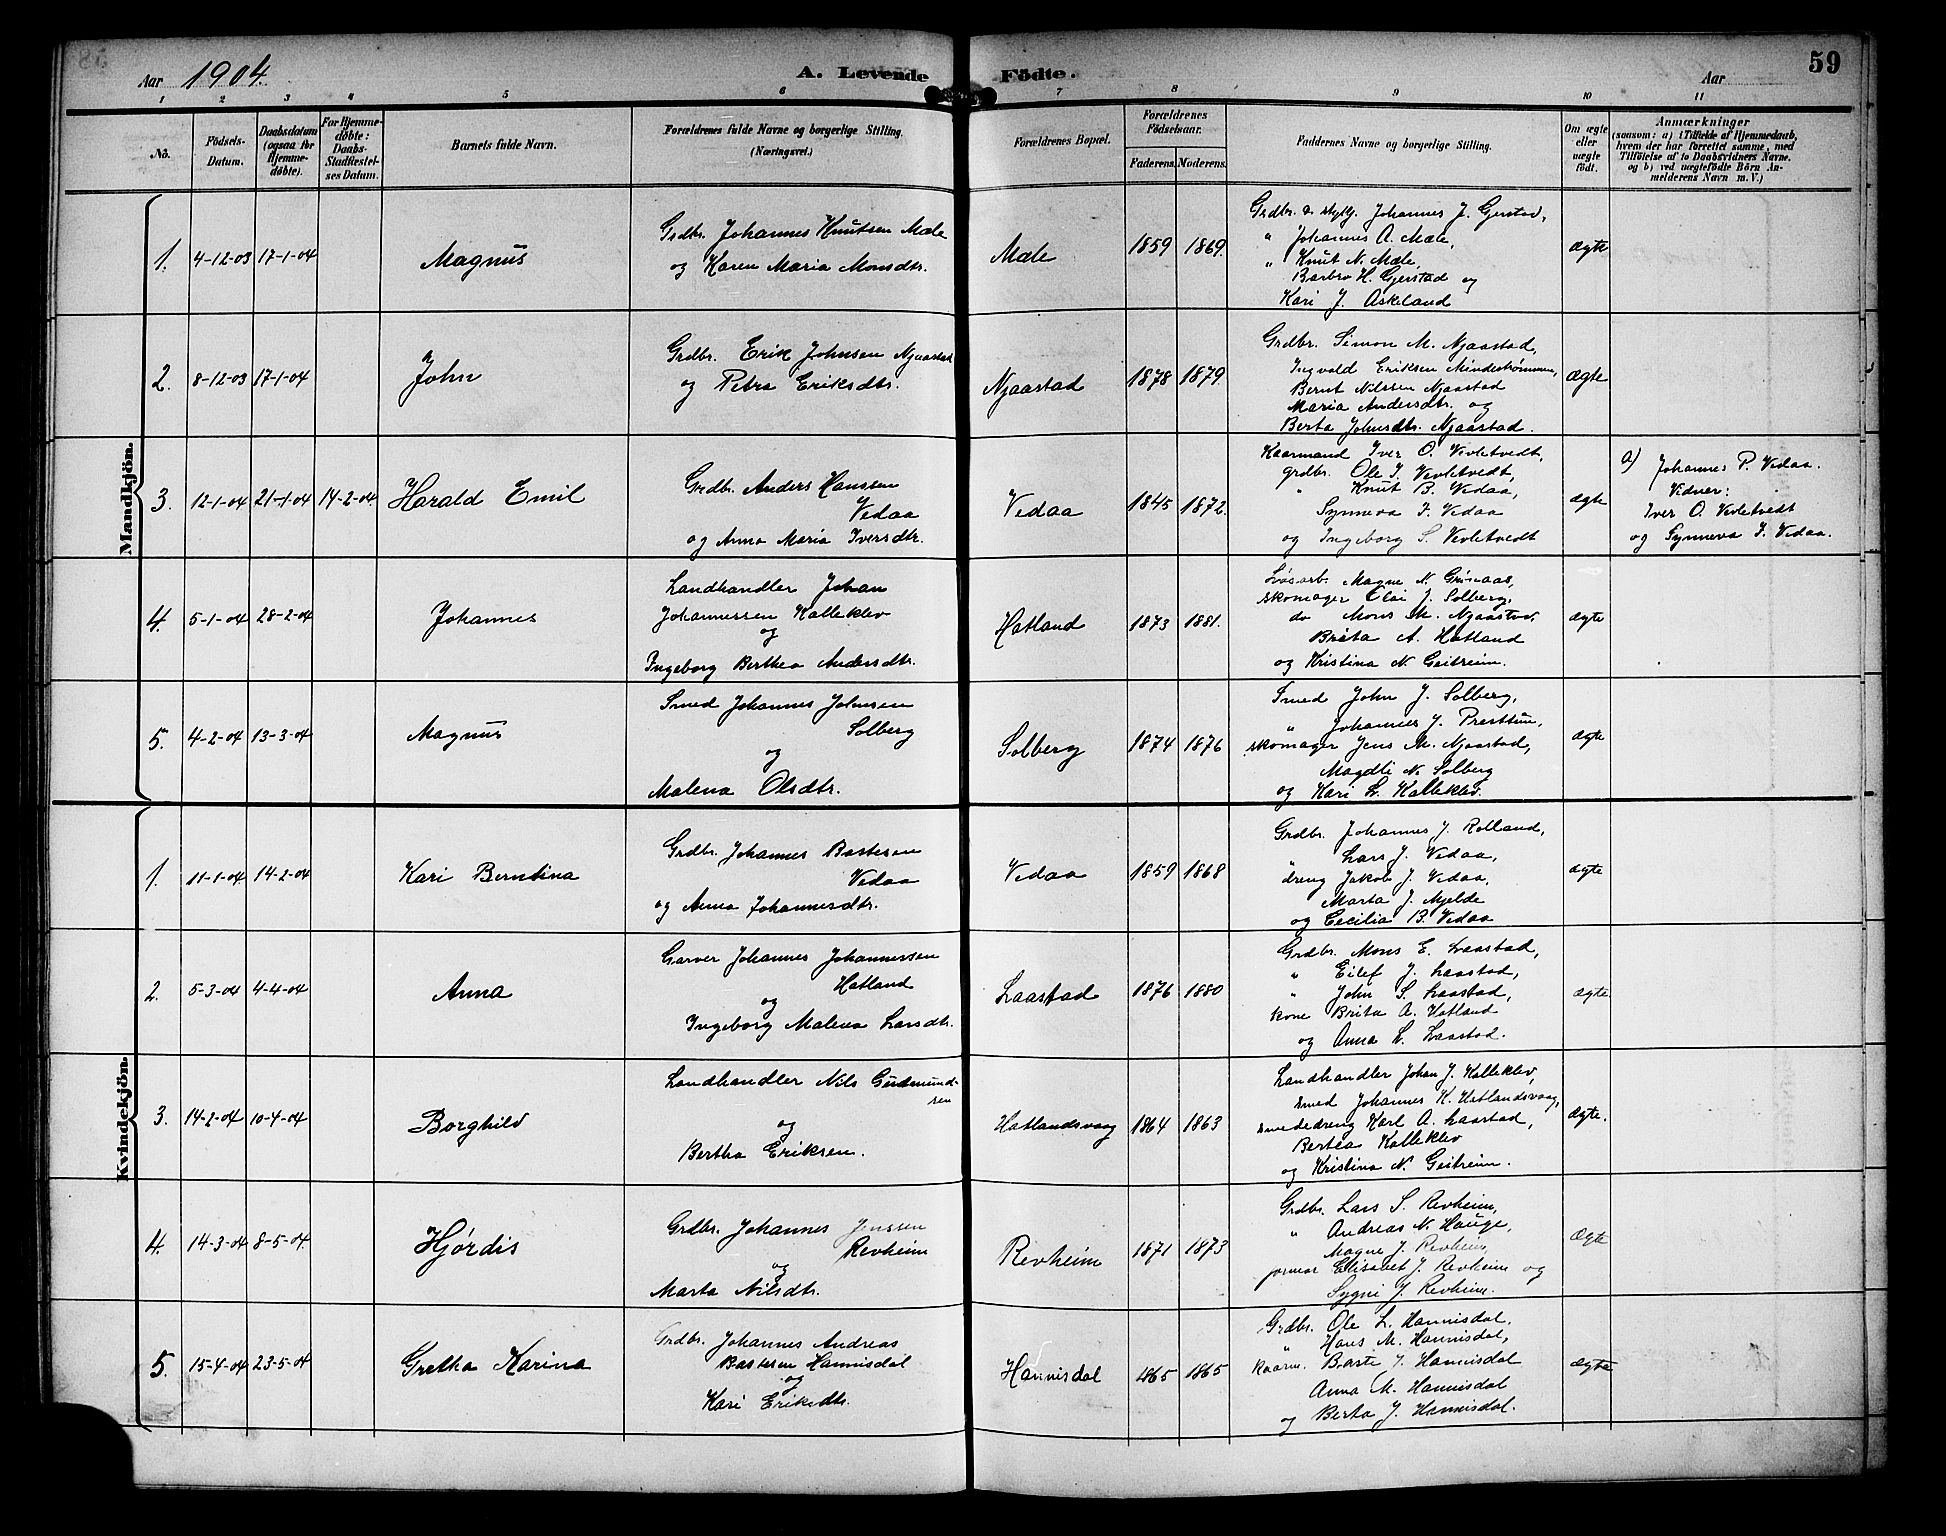 Aar 1904.
A. Levende Födte.
Aar
59
1 2 3 4 5 6 7 8 9 10 11
No.
Födsels-Datum.
Daabsdatum (ogsaa for Hjemme-døbte).
For Hjemme-døbte: Daabs-Stadfæstel-ses Datum.
Barnets fulde Navn.
Forældrenes fulde Navne og borgerlige Stilling. (Næringsvei.)
Forældrenes Bopæl.
Forældrenes Födselsaar.
Faderens. Moderens.
Faddernes Navne og borgerlige Stilling.
Om ægte eller uægte födt.
Anmærkninger
(saasom: a) i Tilfælde af Hjemmedaab,
hvem der har forrettet samme, med
Tilföielse af to Daabsvidners Navne.
og b) ved uægtefödte Börn An-
melderens Navn m. V.)
Mandkjön.
1. 4-12-03 17-1-04 Magnus
Grdbr. Johannes Knutsen Mæle
og Karen Maria Monsdtr.
Mæle 1859 1869.
Grdbr. & skyllg. Johannes J. Gjerstad,
" Johannes A. Mæle,
" Knut N. Mæle,
Barbro H. Gjerstad og
Kari J. Askeland
ægte
2. 8-12-03 17-1-04 John
Grdbr. Erik Johnsen Njaastad
og Petra Eriksdtr.
Njaastad 1878 1879.
Grdbr. Simon M. Njaastad,
Ingvald Eriksen
Bernt Nilssen Njaastad
Maria Andersdtr. og
Berta Johnsdtr. Njaastad.
ægte
3. 12-1-04 21-1-04 14-2-04. Harald Emil
Grdb. Anders Hanssen
Vedaa
og Anna Maria Iversdtr.
Vedaa 1845 1872.
Kaarmand Iver O. Vevletvedt,
grdbr. Ole I. Vevletvedt,
" Knut B. Vedaa,
Synneva I. Vedaa
og Ingeborg S. Vevletvedt
ægte
a) Johannes P. Vedaa.
Vidner:
Iver O. Vevletvedt
og Synneva I. Vedaa.
4. 5-1-04 28-2-04 Johannes
Landhandler Johan
Johannessen Kalleklev
og
Ingeborg Berthea Andersdtr.
Hatland 1873 1881.
Løsarb. Magne N. Grinaas,
skomager Elai J. Solberg,
do Mons M. Njaastad,
Brita A. Hatland
og Kristina N. Geitreim.
ægte
5. 4-2-04 13-3-04 Magnus
Smed Johannes Johnsen
Solberg
og
Malena Olsdtr.
Solberg 1874 1876
Smed John J. Solberg,
" Johannes J. Presttun,
skomager Jens M. Njaastad,
Magdli N. Solberg
og Kari L. Kalleklev.
ægte
Kvindekjön.
1. 11-1-04 14-2-04 Kari Berntina
Grdbr. Johannes Bastesen
Vedaa
og Anna Johannesdtr.
Vedaa 1859 1868
Grdbr. Johannes J. Rolland,
" Lars J. Vedaa,
dreng Jakob J. Vedaa,
Marta J. Mjelde
og Cecilia B. Vedaa
ægte
2. 5-3-04 4-4-04 Anna
Garver Johannes Johannessen
Hatland
og
Ingeborg Malena Larsdtr.
Laastad 1876 1880
Grdbr. Mons E. Laastad,
" Eilef J. Laastad,
" John S. Laastad,
kone Brita A. Hatland
og Anna L. Laastad.
ægte
3. 14-2-04 10-4-04 Borghild
Landhandler Nils Gudmund-
sen
og
Bertha Eriksen.
Hatlandsvaag 1864 1863
Landhandler Johan J. Kalleklev,
smed Johannes K. Hatlandsvaag,
smededreng Karl A. Laastad,
Bertea Kalleklev
og Kristina N. Geitreim.
ægte.
4. 14-3-04 8-5-04. Hjørdis
Grdbr. Johannes Jenssen
Revheim
og
Marta Nilsdtr.
Revheim 1871 1873
Grdbr. Lars S. Revheim,
" Andreas N. Hauge,
Magne J. Revheim,
Elisabet J. Revheim og
Sygni J. Revheim.
ægte
5. 15-4-04 23-5-04 Gretha Karina
Grdbr. Johannes Andreas
Bastesen Hannisdal
og
Kari Eriksdtr.
Hannisdal 1865 1865
Grdbr. Ole L. Hannisdal,
" Hans M. Hannisdal,
kaarm. Baste J. Hannisdal
Anna M. Hannisdal
og Berta J. Hannisdal.
ægte